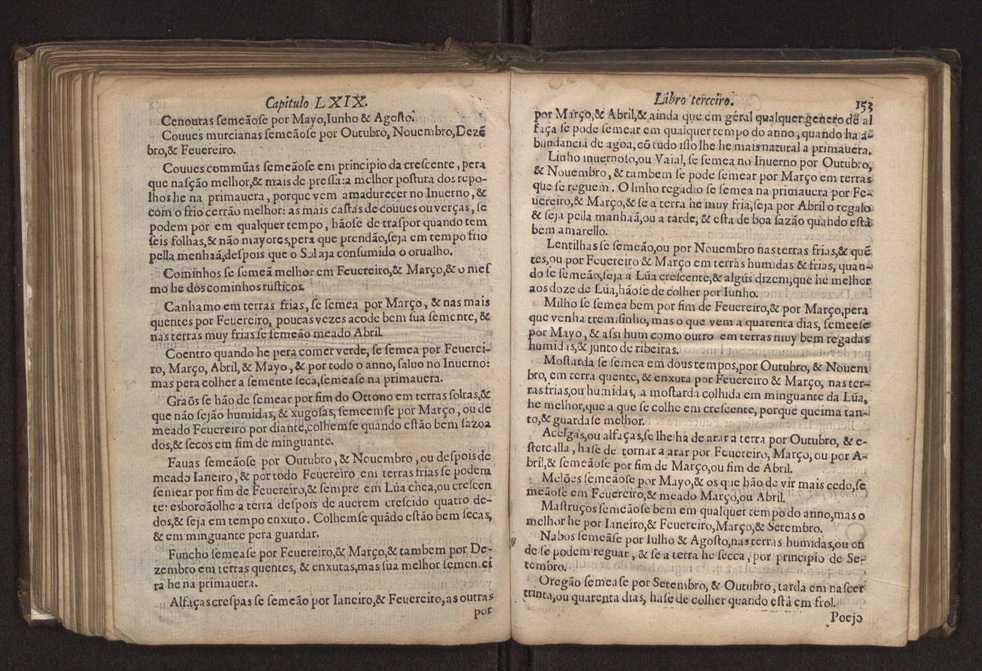 Capitulo LXIX.
Cenouras semeãose por Mayo, Iunho & Agosto.
Couues murcianas semeãose por Outubro, Nouembro, Dezẽ
bro, & Feuereiro.
Couues commũas semeãose em principio da crescente, pera
que nasção melhor, & mais depressa: a melhor postura dos repo-
lhos he na primauera, porque vem amadurecer no Inuerno, &
com o frio cerrão melhor: as mais castas de couues ou verças, se
podem por em qualquer tempo, hãose de traspor quando tem
seis folhas, & não mayores, pera que prendão, seja em tempo frio
pella menhaã, despois que o Sol aja consumido o orualho.
Cominhos se semeã melhor em Feuereiro, & Março, & o mes
mo he dos cominhos rusticos.
Canhamo em terras frias, se semea por Março, & nas mais
quentes por Feuereiro, poucas vezes acode bem sua semente, &
nas terras muy frias se semeão meado Abril.
Coentro quando he pera comer verde, se semea por Feuerei-
ro, Março, Abril, & Mayo, & por todo o anno, saluo no Inuerno:
mas pera colher a semente seca, semease na primauera.
Graõs se hão de semear por fim do Ottono em terras soltas, &
que não sejão humidas, & xugosas, semeemse por Março, ou de
meado Feuereiro por diante, colhemse quando estão bem sazoa
dos, & secos em fim de minguante.
Fauas semeãose por Outubro, & Nouembro, ou despois de
meado Ianeiro, & por todo Feuereiro em terras frias se podem
semear por fim de Feuereiro, & sempre em Lũa chea, ou crescen
te: esboroãolhe a terra despois de auerem crescido quatro de-
dos, & seja em tempo enxuto. Colhemse quãdo estão bem secas,
& em minguante pera guardar.
Funcho semease por Feuereiro, & Março, & tambem por De-
zembro em terras quentes, & enxutas, mas sua melhor semen.ei
ra he na primauera.
Alfaças crespas se semeão por Ianeiro, & Feuereiro, as outras
por
Libro terceiro. 153
por Março, & Abril, & ainda que em geral qualquer genero de al
faça se pode semear em qualquer tempo do anno, quando ha a-
bundancia de agoa, cõ tudo isso lhe he mais natural a primauera.
Linho inuernoso, ou Vaial, se semea no Inuerno por Outubro,
& Nouembro, & tambem se pode semear por Março em terras
que se reguem. O linho regadio se semea na primauera por Fe-
uereiro, & Março, & se a terra he muy fria, seja por Abril o regalo
& seja pella manhaã, ou a tarde, & esta de boa sazão quando está
bem amarello.
Lentilhas se semeão, ou por Nouembro nas terras frias, & quẽ
tes, ou por Feuereiro & Março em terras humidas & frias, quan-
do se semeão, seja a Lũa crescente, & algũs dizem, que he melhor
aos doze de Lũa, hãose de colher por Iunho.
Milho se semea bem por fim de Feuereiro, & por Março, pera
que venha tremesinho, mas o que vem a quarenta dias, semeese
por Mayo, & assi hum como outro em terras muy bem regadas
humidas, & junto de ribeiras.
Mostarda se semea em dous tempos, por Outubro, & Nouem
bro, em terra quente, & enxuta por Feuereiro & Março, nas ter-
ras frias, ou humidas, a mostarda colhida em minguante da Lũa,
he melhor, que a que se colhe em crescente, porque queima tan-
to, & guardase melhor.
Acelgas, ou alfaças, se lhe ha de arar a terra por Outubro, & e-
stercalla, hase de tornar a arar por Feuereiro, Março, ou por A-
bril, & semeãose por fim de Março, ou fim de Abril.
Melões semeãose por Mayo, & os que hão de vir mais cedo, se
meãose em Feuereiro, & meado Março, ou Abril.
Mastruços semeãose bem em qualquer tempo do anno, mas o
melhor he por Ianeiro, & Feuereiro, Março, & Setembro.
Nabos semeãose por Iulho & Agosto, nas terras humidas, ou on
de se podem reguar, & se a terra he secca, por principio de Se-
tembro.
Oregão semease por Setembro, & Outubro, tarda em nascer
trinta, ou quarenta dias, hase de colher quando está em frol.
Poejo